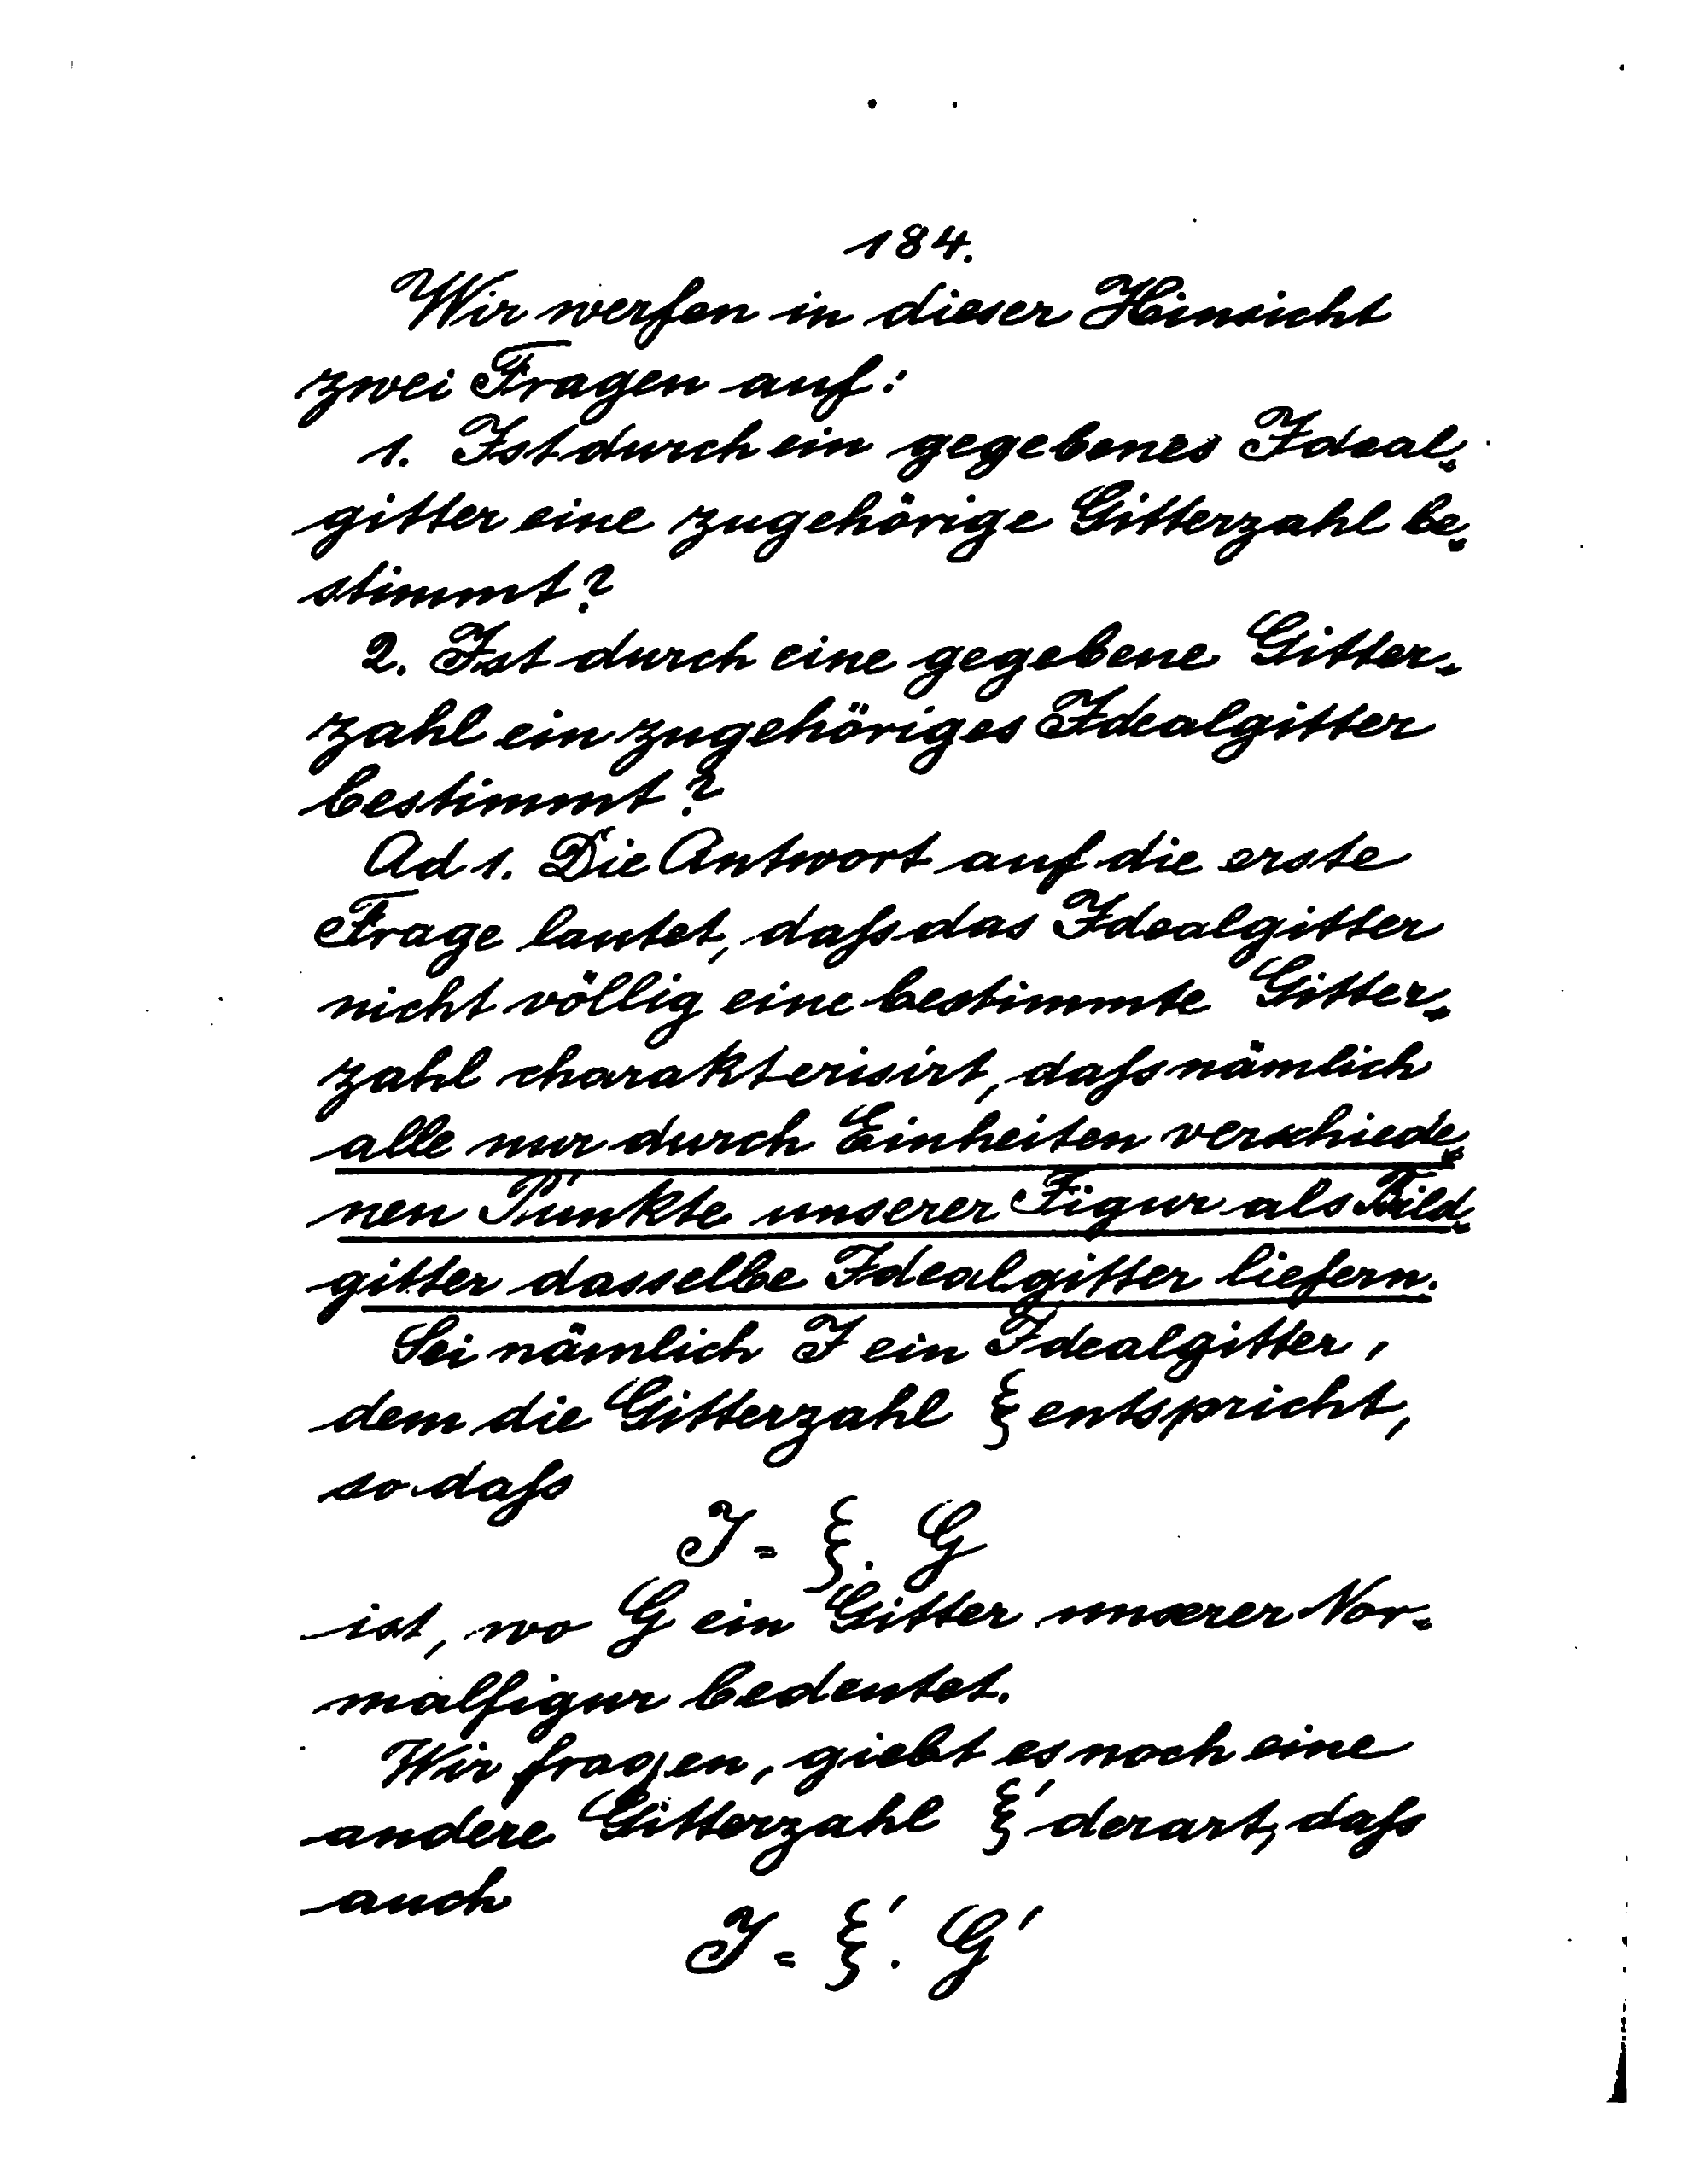 184.
Wir werfen in dieser Hinsicht
zwei Fragen auf:
1. Ist durch ein gegebenes Ideal-
gitter eine zugehörige Gitterzahl be-
stimmt?
2. Ist durch eine gegebene Gitter-
zahl ein zugehöriges Idealgitter
bestimmt?
Ad 1. Die Antwort auf die erste
Frage lautet, daß das Idealgitter
nicht völlig eine bestimmte Gitter-
zahl charakterisirt, daß nämlich
alle nur durch Einheiten verschiede-
nen Punkte unserer Figur als Bild-
gitter dasselbe Idealgitter liefern.
Sei nämlich J ein Idealgitter,
dem die Gitterzahl ξ entspricht,
so daß
J = ξ. G
ist, wo G ein Gitter unserer Nor-
malfigur bedeutet.
Wir fragen, giebt es noch eine
andere Gitterzahl ξ' derart, daß
auch
J = ξ'. G'